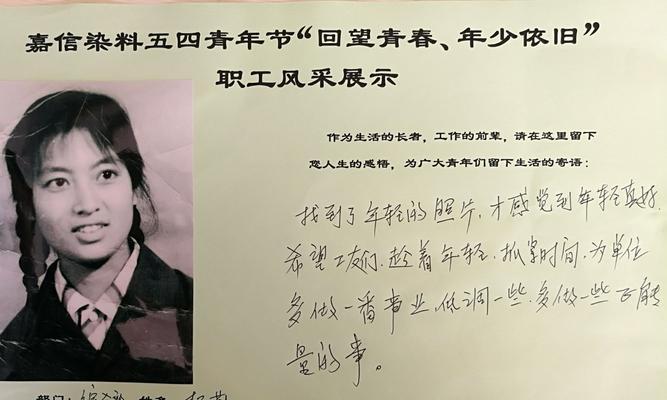 嘉信染料五四青年节“回望青春、年少依旧”
职工风采展示
作为生活的长者，工作的前辈，请在这里留下
您人生的感悟，为广大青年们留下生活的寄语：
找到了年轻的照片，才感觉到年轻真好.
希望工友们.趁着年轻.抓掌时间.为单位
多做一番事业，低调一些.多做一些正能
量的事。
部门： 姓名：